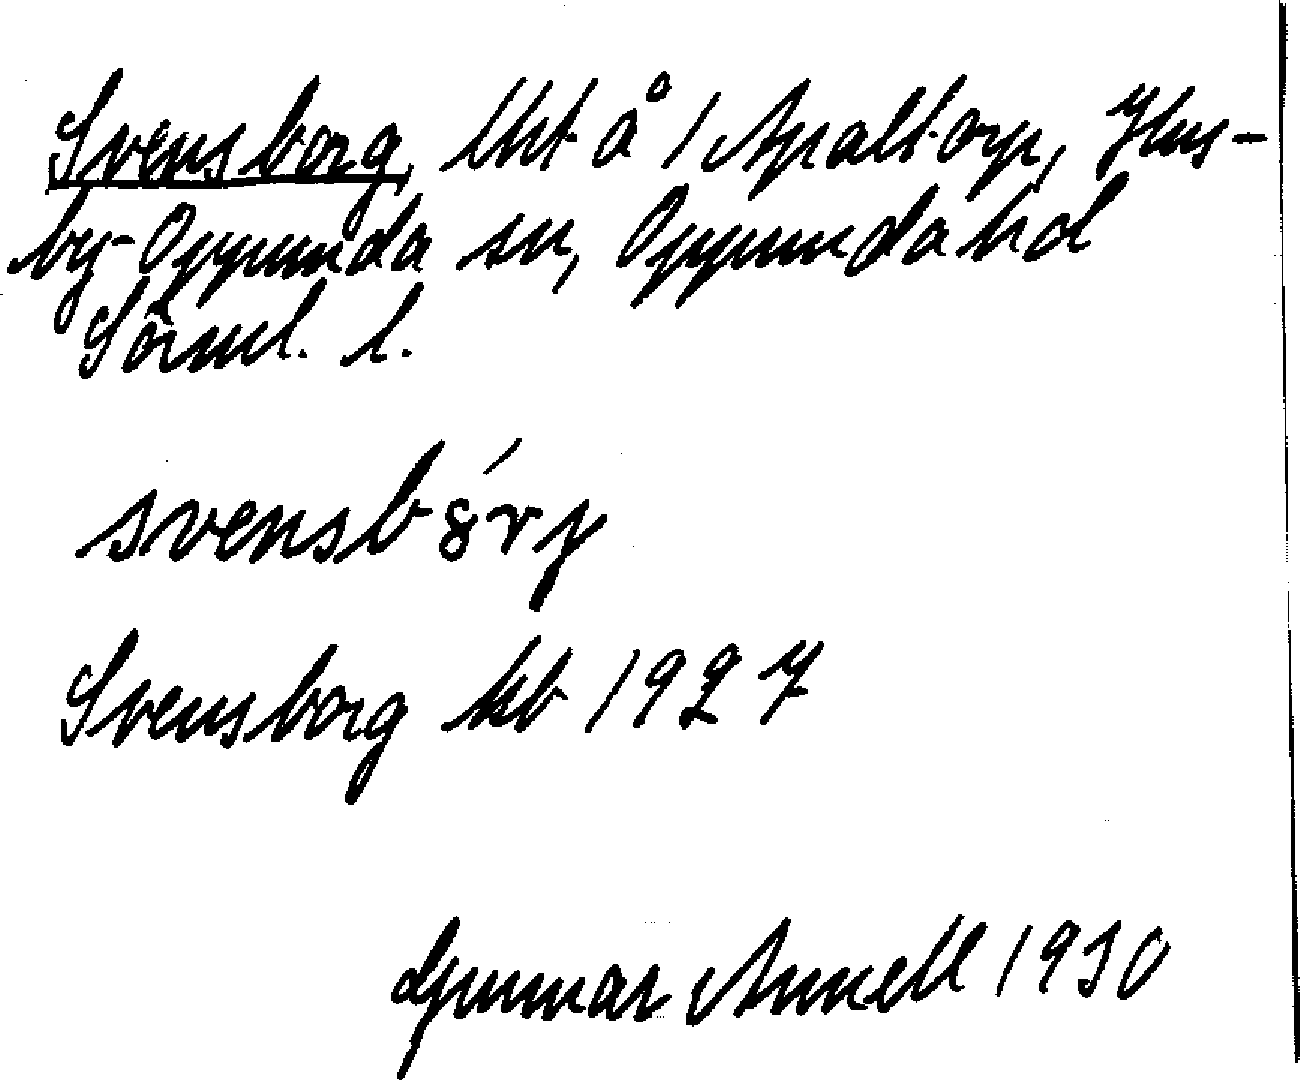 Svensborg, lht å 1 Apaltorp, Hus-
by-Oppunda sn, Oppunda hd
Sörml. l.
svensbórj
Svensborg kb 1927
Gunnar Annell 1930